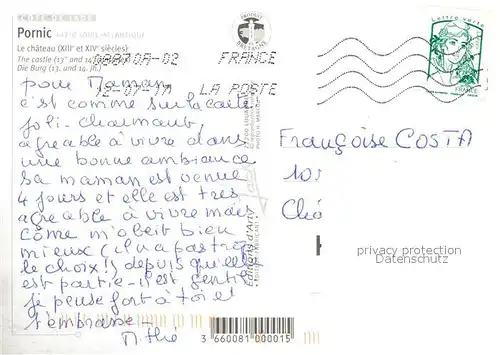 CÔTE DE JADE
Pornic 44210 LOIRE-ATLANTIQUE
Le château (XIIIᵉ et XIVᵉ siècles)
The castle (13ᵗʰ and 14
Die Burg (13. und 14. Jh.)
08870A-02 FRANCE
12-07-17 LA POSTE
PRODUIT EN BRETAGNE
Lettre verte
FRANCE
pour Maman
c'est comme sur la carte
joli - charmant,
agréable à vivre dans
une bonne ambiance
sa maman est venue
4 jours et elle est très
agréable à vivre mais
côme m'obéit bien
mieux (il n'a pas trop
le choix !) depuis qu'elle
est partie - il est gentil
je pense fort à toi et
t'embrasse -
M. thé
Françoise COSTA
10
Ch
privacy protection
Datenschutz
Editions d'Art
3 660081 000015